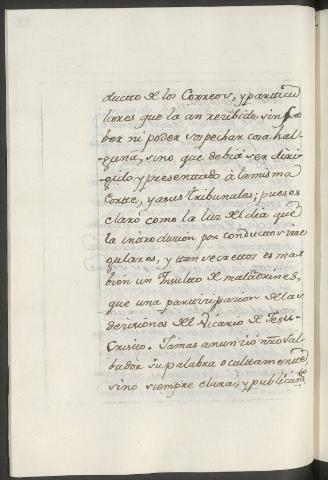 ducto de los Correos, y particu
lares que la an recibido, sin sa
ber ni poder sospechar cosa hal-
-guna, sino que debia ser diri-
girlo y presentado à la misma
Corte, y a sus tribunales; pues es
claro como la luz del dia que
la introducion por conductos irre
gulares, y tan secretos es mas
bien un Insulto de malcdrines,
que una participacion de las
decisiones del Vicario de Jesu-
Cristo. Jamas anuncio nr̃o Sal-
bador su palabra ocultamente
sino siempre clara, y publicamte